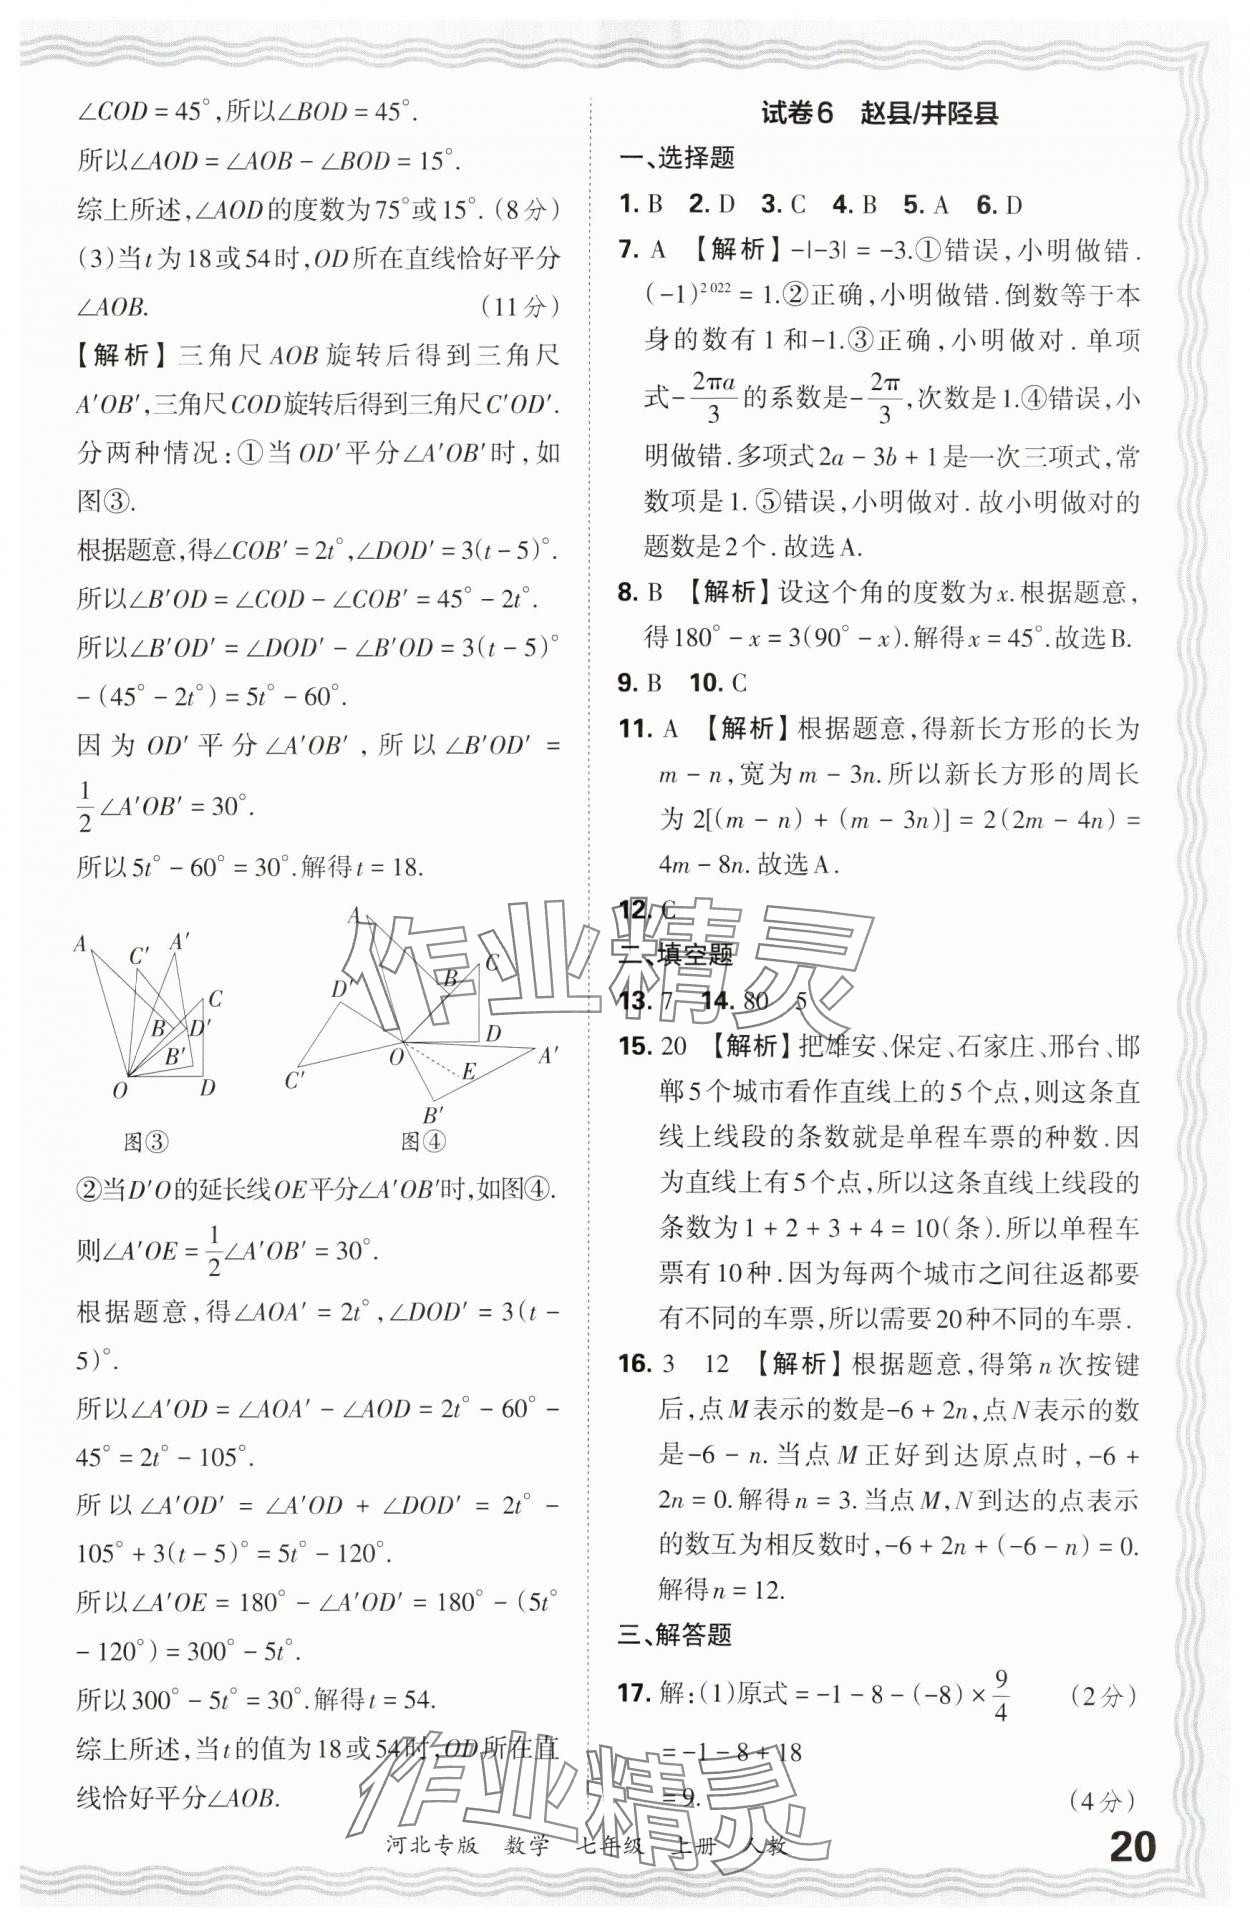 ∠COD=45°,所以∠BOD=45°.
所以∠AOD=∠AOB-∠BOD=15°.
综上所述,∠AOD的度数为75°或15°.(8分)
(3)当t为18或54时,OD所在直线恰好平分
∠AOB. (11分)
【解析】三角尺AOB旋转后得到三角尺
A′OB′,三角尺COD旋转后得到三角尺C′OD′.
分两种情况:①当OD′平分∠A′OB′时,如
图③.
根据题意,得∠COB′=2t°,∠DOD′=3(t-5)°.
所以∠B′OD=∠COD-∠COB′=45°-2t°.
所以∠B′OD′=∠DOD′-∠B′OD=3(t-5)°
-(45°-2t°)=5t°-60°.
因为OD′平分∠A′OB′,所以∠B′OD′=
1/2∠A′OB′=30°.
所以5t°-60°=30°.解得t=18.
A C′ A′ C B D′ B′ O D
图③
A B C D′ D O A′ C′ E B′
图④
②当D′O的延长线OE平分∠A′OB′时,如图④.
则∠A′OE=1/2∠A′OB′=30°.
根据题意,得∠AOA′=2t°,∠DOD′=3(t-
5)°.
所以∠A′OD=∠AOA′-∠AOD=2t°-60°-
45°=2t°-105°.
所以∠A′OD′=∠A′OD+∠DOD′=2t°-
105°+3(t-5)°=5t°-120°.
所以∠A′OE=180°-∠A′OD′=180°-(5t°
-120°)=300°-5t°.
所以300°-5t°=30°.解得t=54.
综上所述,当t的值为18或54时,OD所在直
线恰好平分∠AOB.
试卷6 赵县/井陉县
一、选择题
1. B 2. D 3. C 4. B 5. A 6. D
7. A 【解析】-|-3|=-3.①错误,小明做错.
(-1)²⁰²²=1.②正确,小明做错.倒数等于本
身的数有1和-1.③正确,小明做对.单项
式-2πa/3的系数是-2π/3,次数是1.④错误,小
明做错.多项式2a-3b+1是一次三项式,常
数项是1.⑤错误,小明做对.故小明做对的
题数是2个.故选A.
8. B 【解析】设这个角的度数为x.根据题意,
得180°-x=3(90°-x).解得x=45°.故选B.
9. B 10. C
11. A 【解析】根据题意,得新长方形的长为
m-n,宽为m-3n.所以新长方形的周长
为2[(m-n)+(m-3n)]=2(2m-4n)=
4m-8n.故选A.
12. C
二、填空题
13. 7 14. 80 5
15. 20 【解析】把雄安、保定、石家庄、邢台、邯
郸5个城市看作直线上的5个点,则这条直
线上线段的条数就是单程车票的种数.因
为直线上有5个点,所以这条直线上线段的
条数为1+2+3+4=10(条).所以单程车
票有10种.因为每两个城市之间往返都要
有不同的车票,所以需要20种不同的车票.
16. 3 12 【解析】根据题意,得第n次按键
后,点M表示的数是-6+2n,点N表示的数
是-6-n.当点M正好到达原点时,-6+
2n=0.解得n=3.当点M,N到达的点表示
的数互为相反数时,-6+2n+(-6-n)=0.
解得n=12.
三、解答题
17. 解:(1)原式=-1-8-(-8)×9/4 (2分)
=-1-8+18
=9. (4分)
作业精灵
作业精灵
河北专版 数学 七年级 上册 人教
20